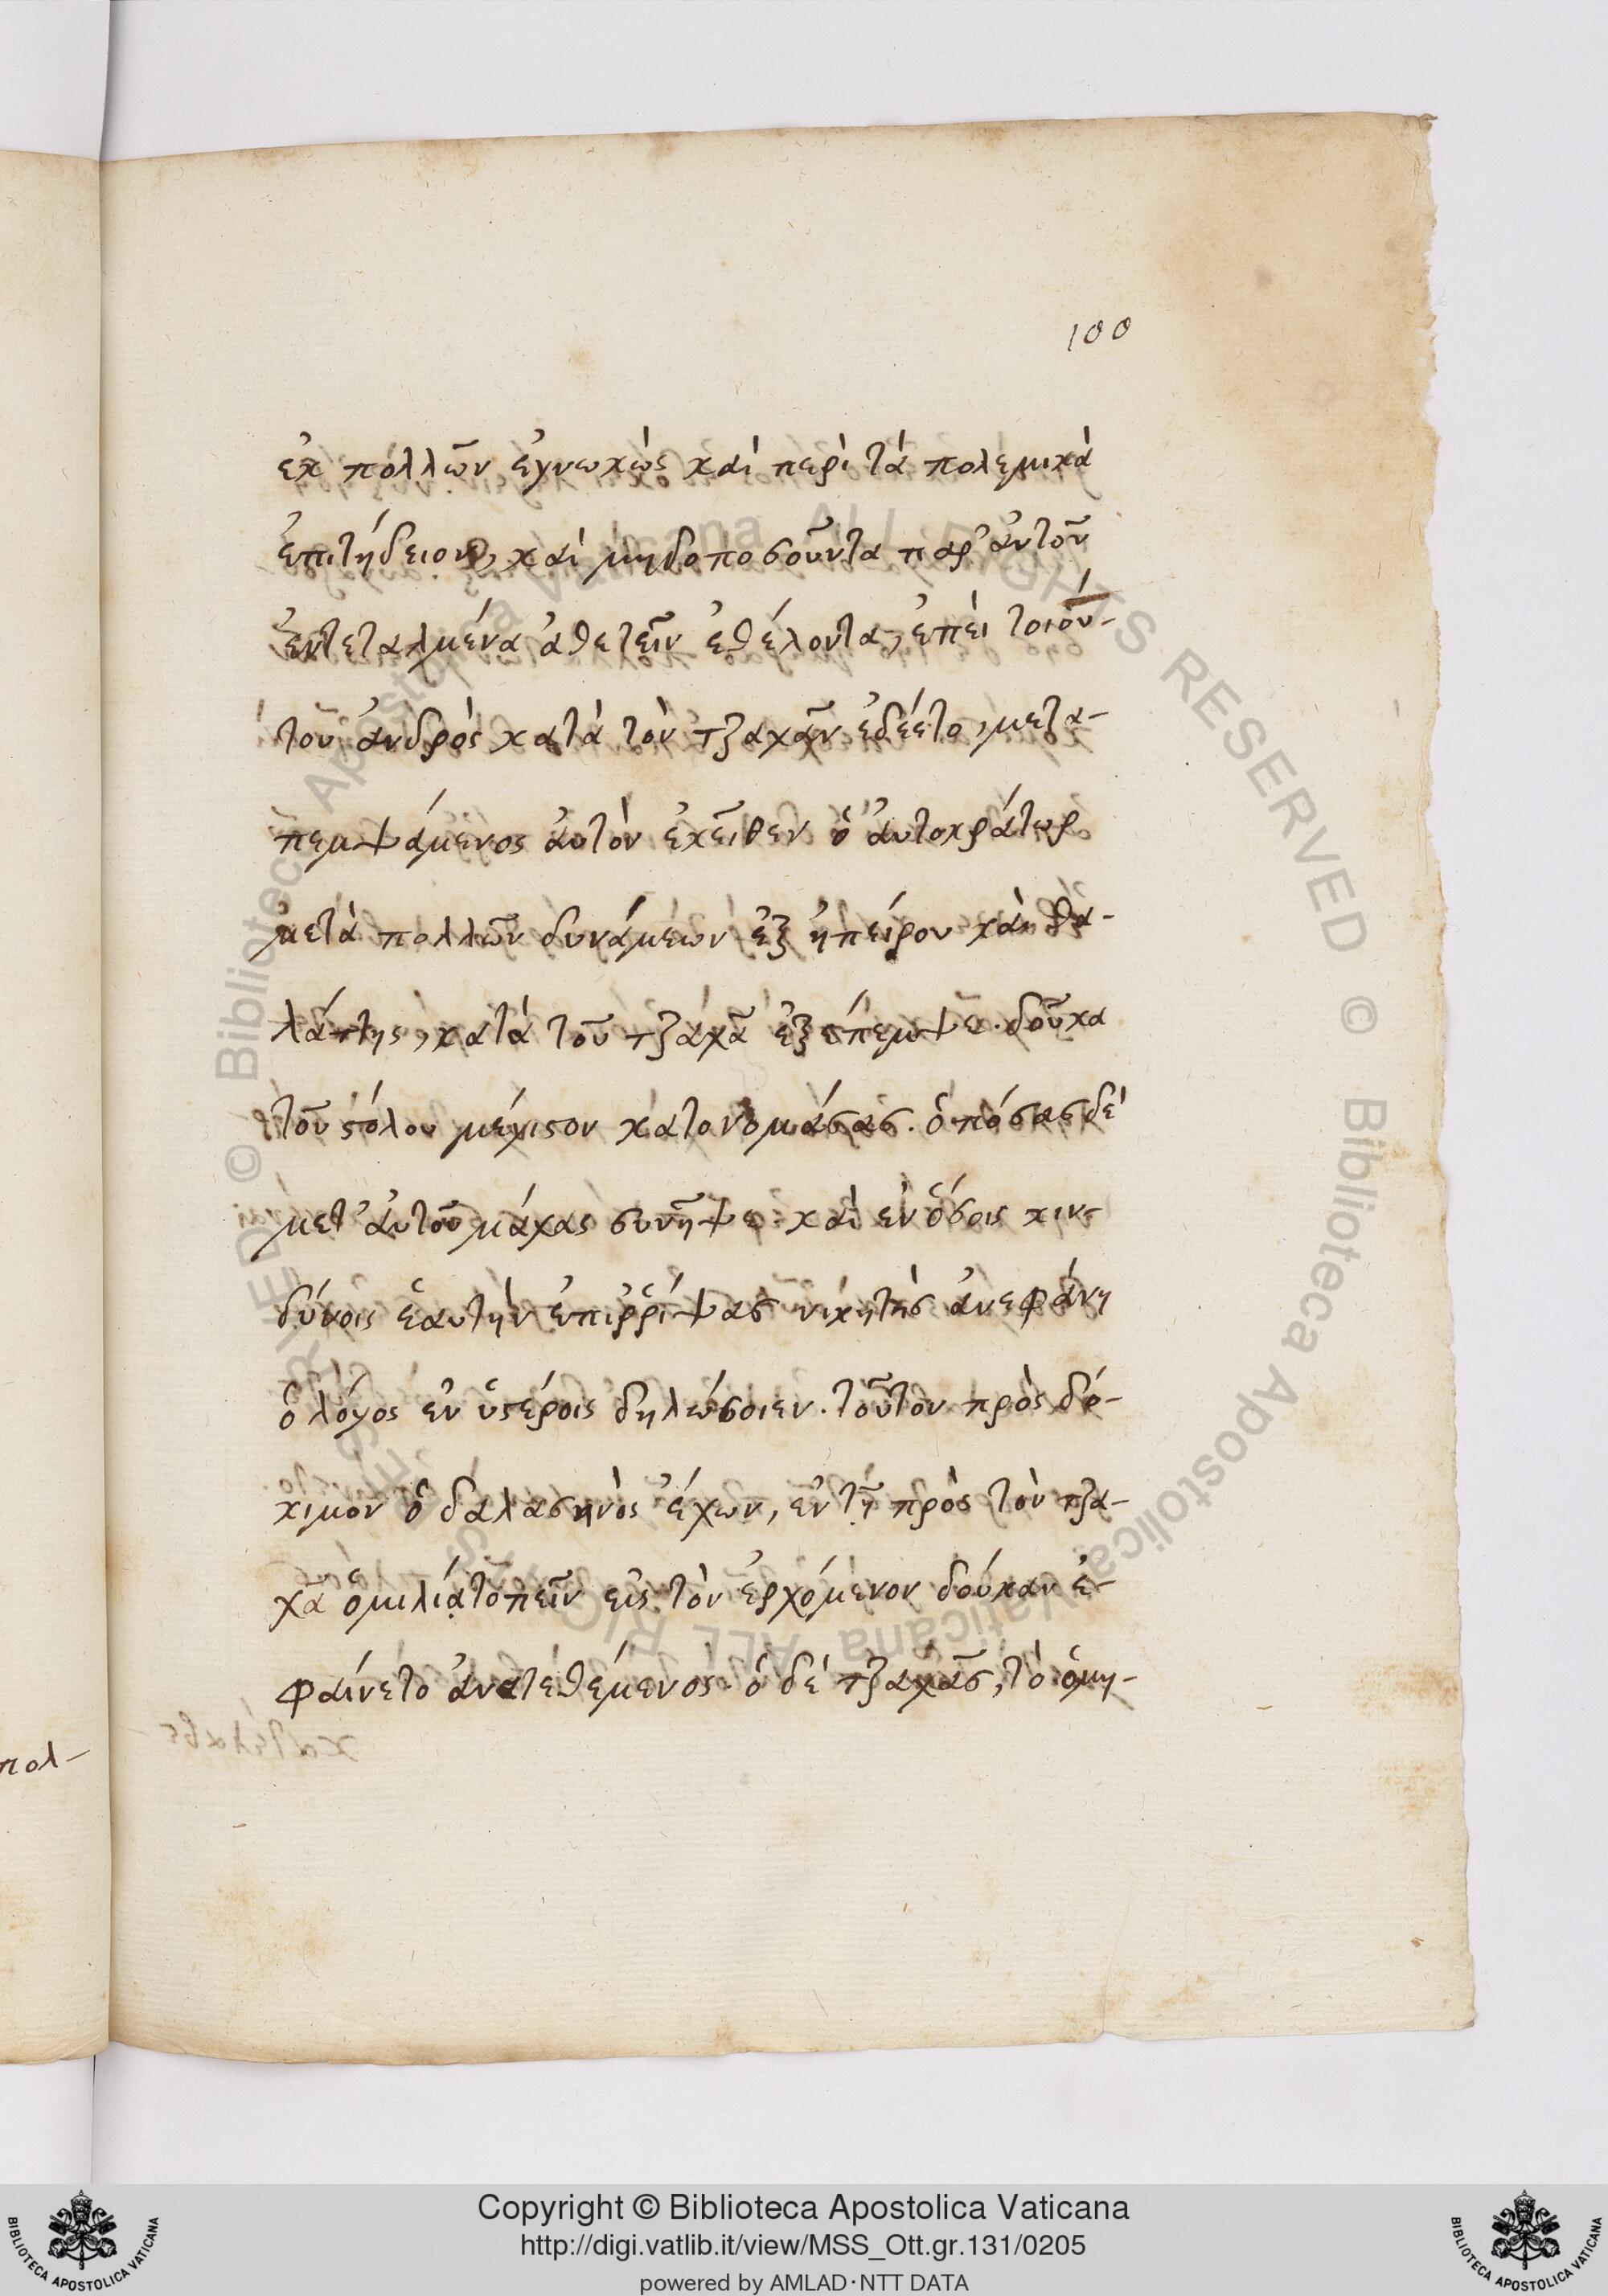 100
ἐκ πολλῶν ἐγνωκὼς καὶ περὶ τὰ πολεμικὰ
ἐπιτήδειον, καὶ μηδοποσοῦντα παρ' αὐτοῦ
ἐντεταλμένα ἀθετεῖν ἐθέλοντα, ἐπεὶ τοιού-
του ἀνδρὸς κατὰ τὸν τζαχᾶν ἐδέετο, μετα-
πεμψάμενος ἀυτὸν ἐκεῖθεν ὁ ἀυτοκράτωρ
μετὰ πολλῶν δυνάμεων ἐξ ἠπείρου καὶ θα-
λάττης, κατὰ τοῦ τζαχᾶ ἐξέπεμψε. δοῦκα
τοῦ ϛόλου μέγιϛον κατονομάσας. ὁπόσας δὲ
μετ' ἀυτοῦ μάχας συνῆψε καὶ ἐν ὅσοις κιν-
δύνοις ἑαυτὴν ἐπιῤῥίψας νικητὴς ἀνεφάνη
ὁ λόγος ἐν ὑϛέροις δηλώσοιεν. τοῦτον πρὸς δό-
κιμον ὁ δαλασηνὸς ἔχων, ἐν τῇ πρὸς τὸν τζα-
χᾶ ὁμιλίᾳ τὸ πεῖν εἰς τὸν ἐρχόμενον δούκαν ἐ-
φαίνετο ἀνατεθέμενος. ὁ δὲ τζαχᾶς, τὸ ὁμη-
πολ-
Copyright © Biblioteca Apostolica Vaticana
http://digi.vatlib.it/view/MSS_Ott.gr.131/0205
powered by AMLAD·NTT DATA
BIBLIOTECA APOSTOLICA VATICANA
BIBLIOTECA APOSTOLICA VATICANA
© Biblioteca Apostolica Vaticana ALL RIGHTS RESERVED
© Biblioteca Apostolica Vaticana ALL RIGHTS RESERVED